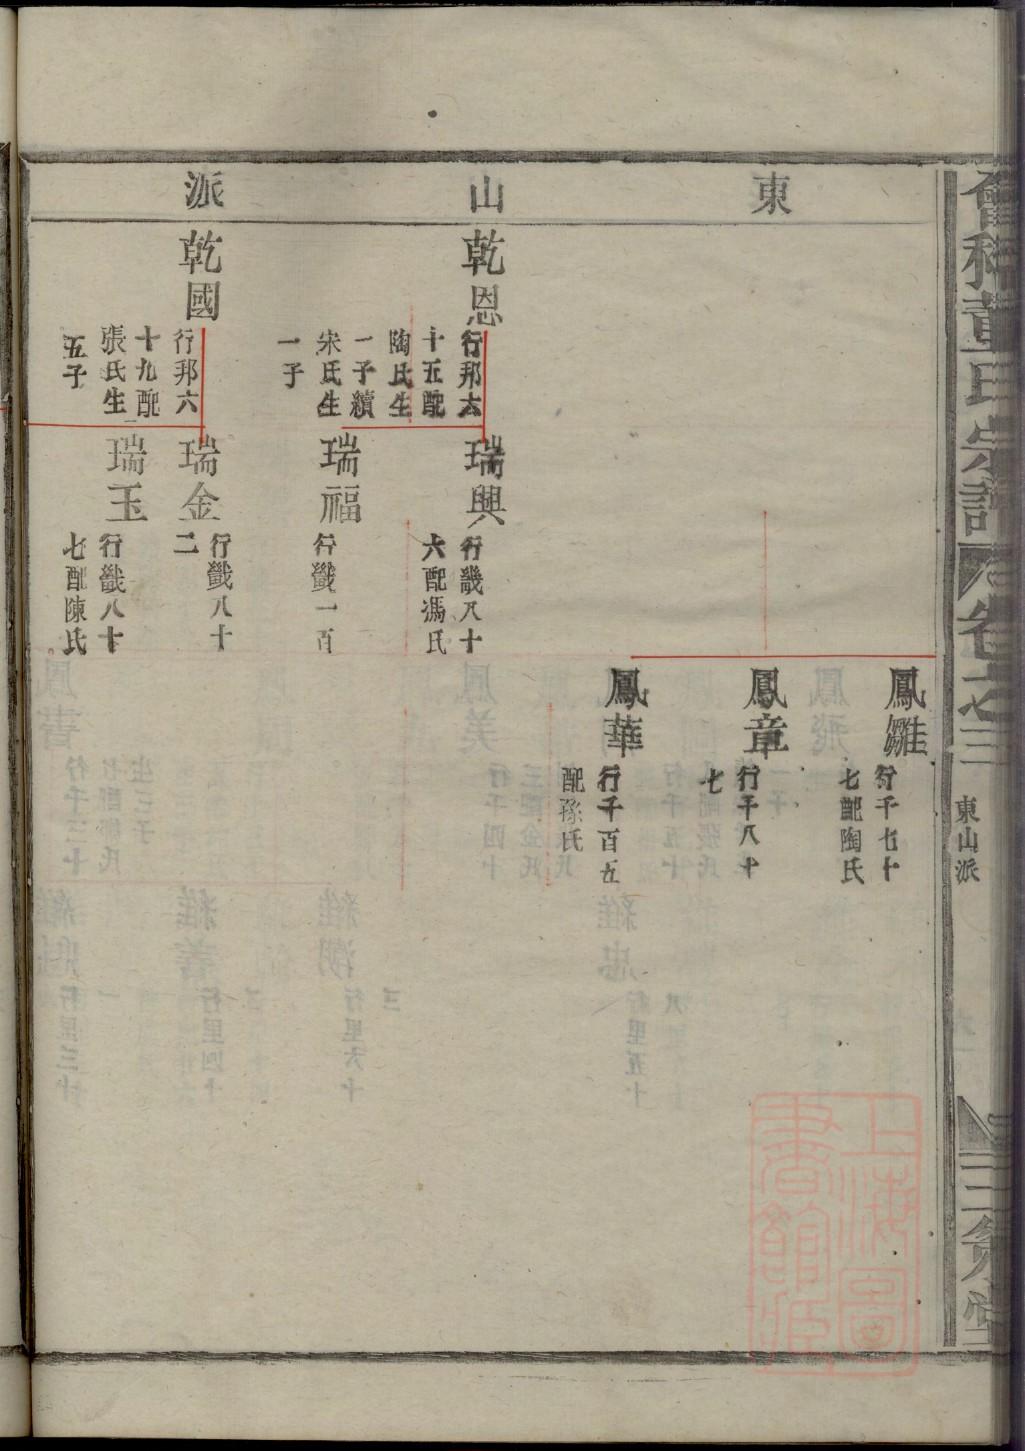 東
山
派
乾恩
行邦六
十五配
陶氏生
一子續
宋氏生
一子
乾國
行邦六
十九配
張氏生
五子
瑞興
行畿八十
六配馮氏
瑞福
行畿一百
瑞金
行畿八十
二
瑞玉
行畿八十
七配陳氏
鳳雛
行千七十
七配陶氏
鳳章
行千八十
七
鳳華
行千百五
配孫氏
董氏宗譜
東山派
上海圖
書館藏